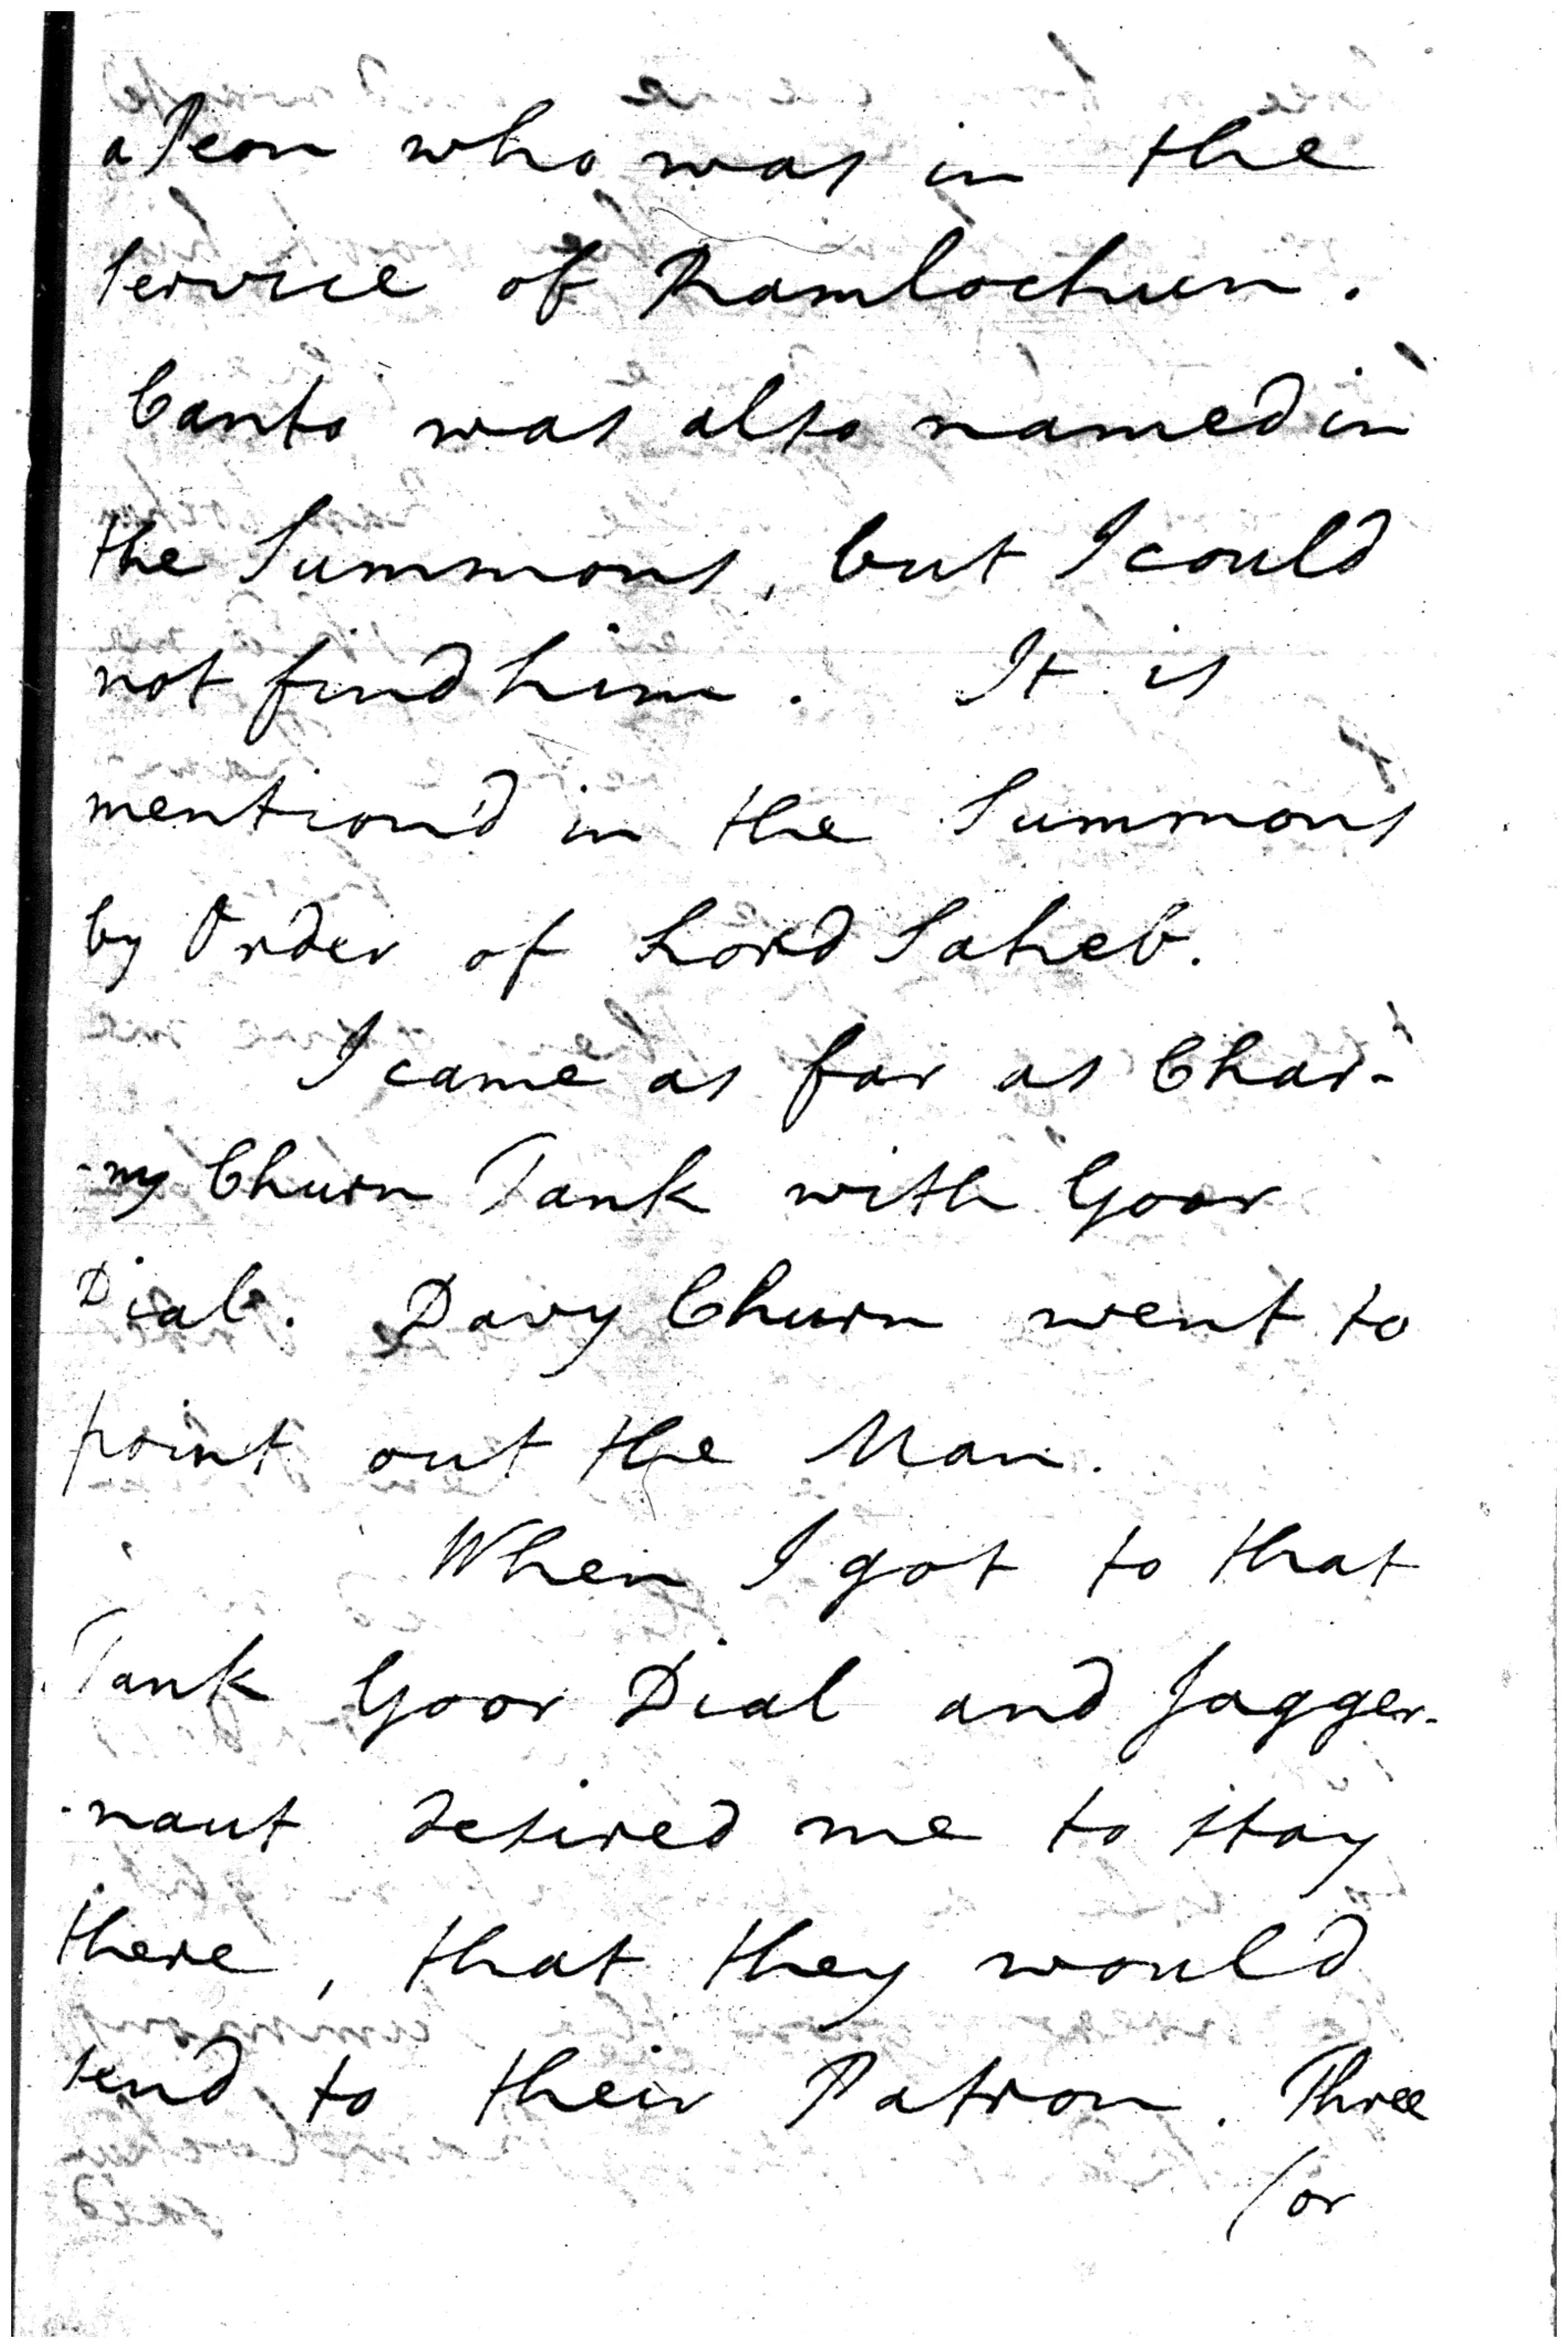 a Peon who was in the
service of Ramlochun.
Canto was also named in
the Summons, but I could
not find him. It is
mention'd in the Summons
by Order of Lord Saheb.
I came as far as Char-
-ny Churn Tank with Goor
Dial. Davy Churn went to
point out the Man.
When I got to that
Tank Goor Dial and Jagger-
-naut desired me to stay
there, that they would
send to their Patron. Three
(or